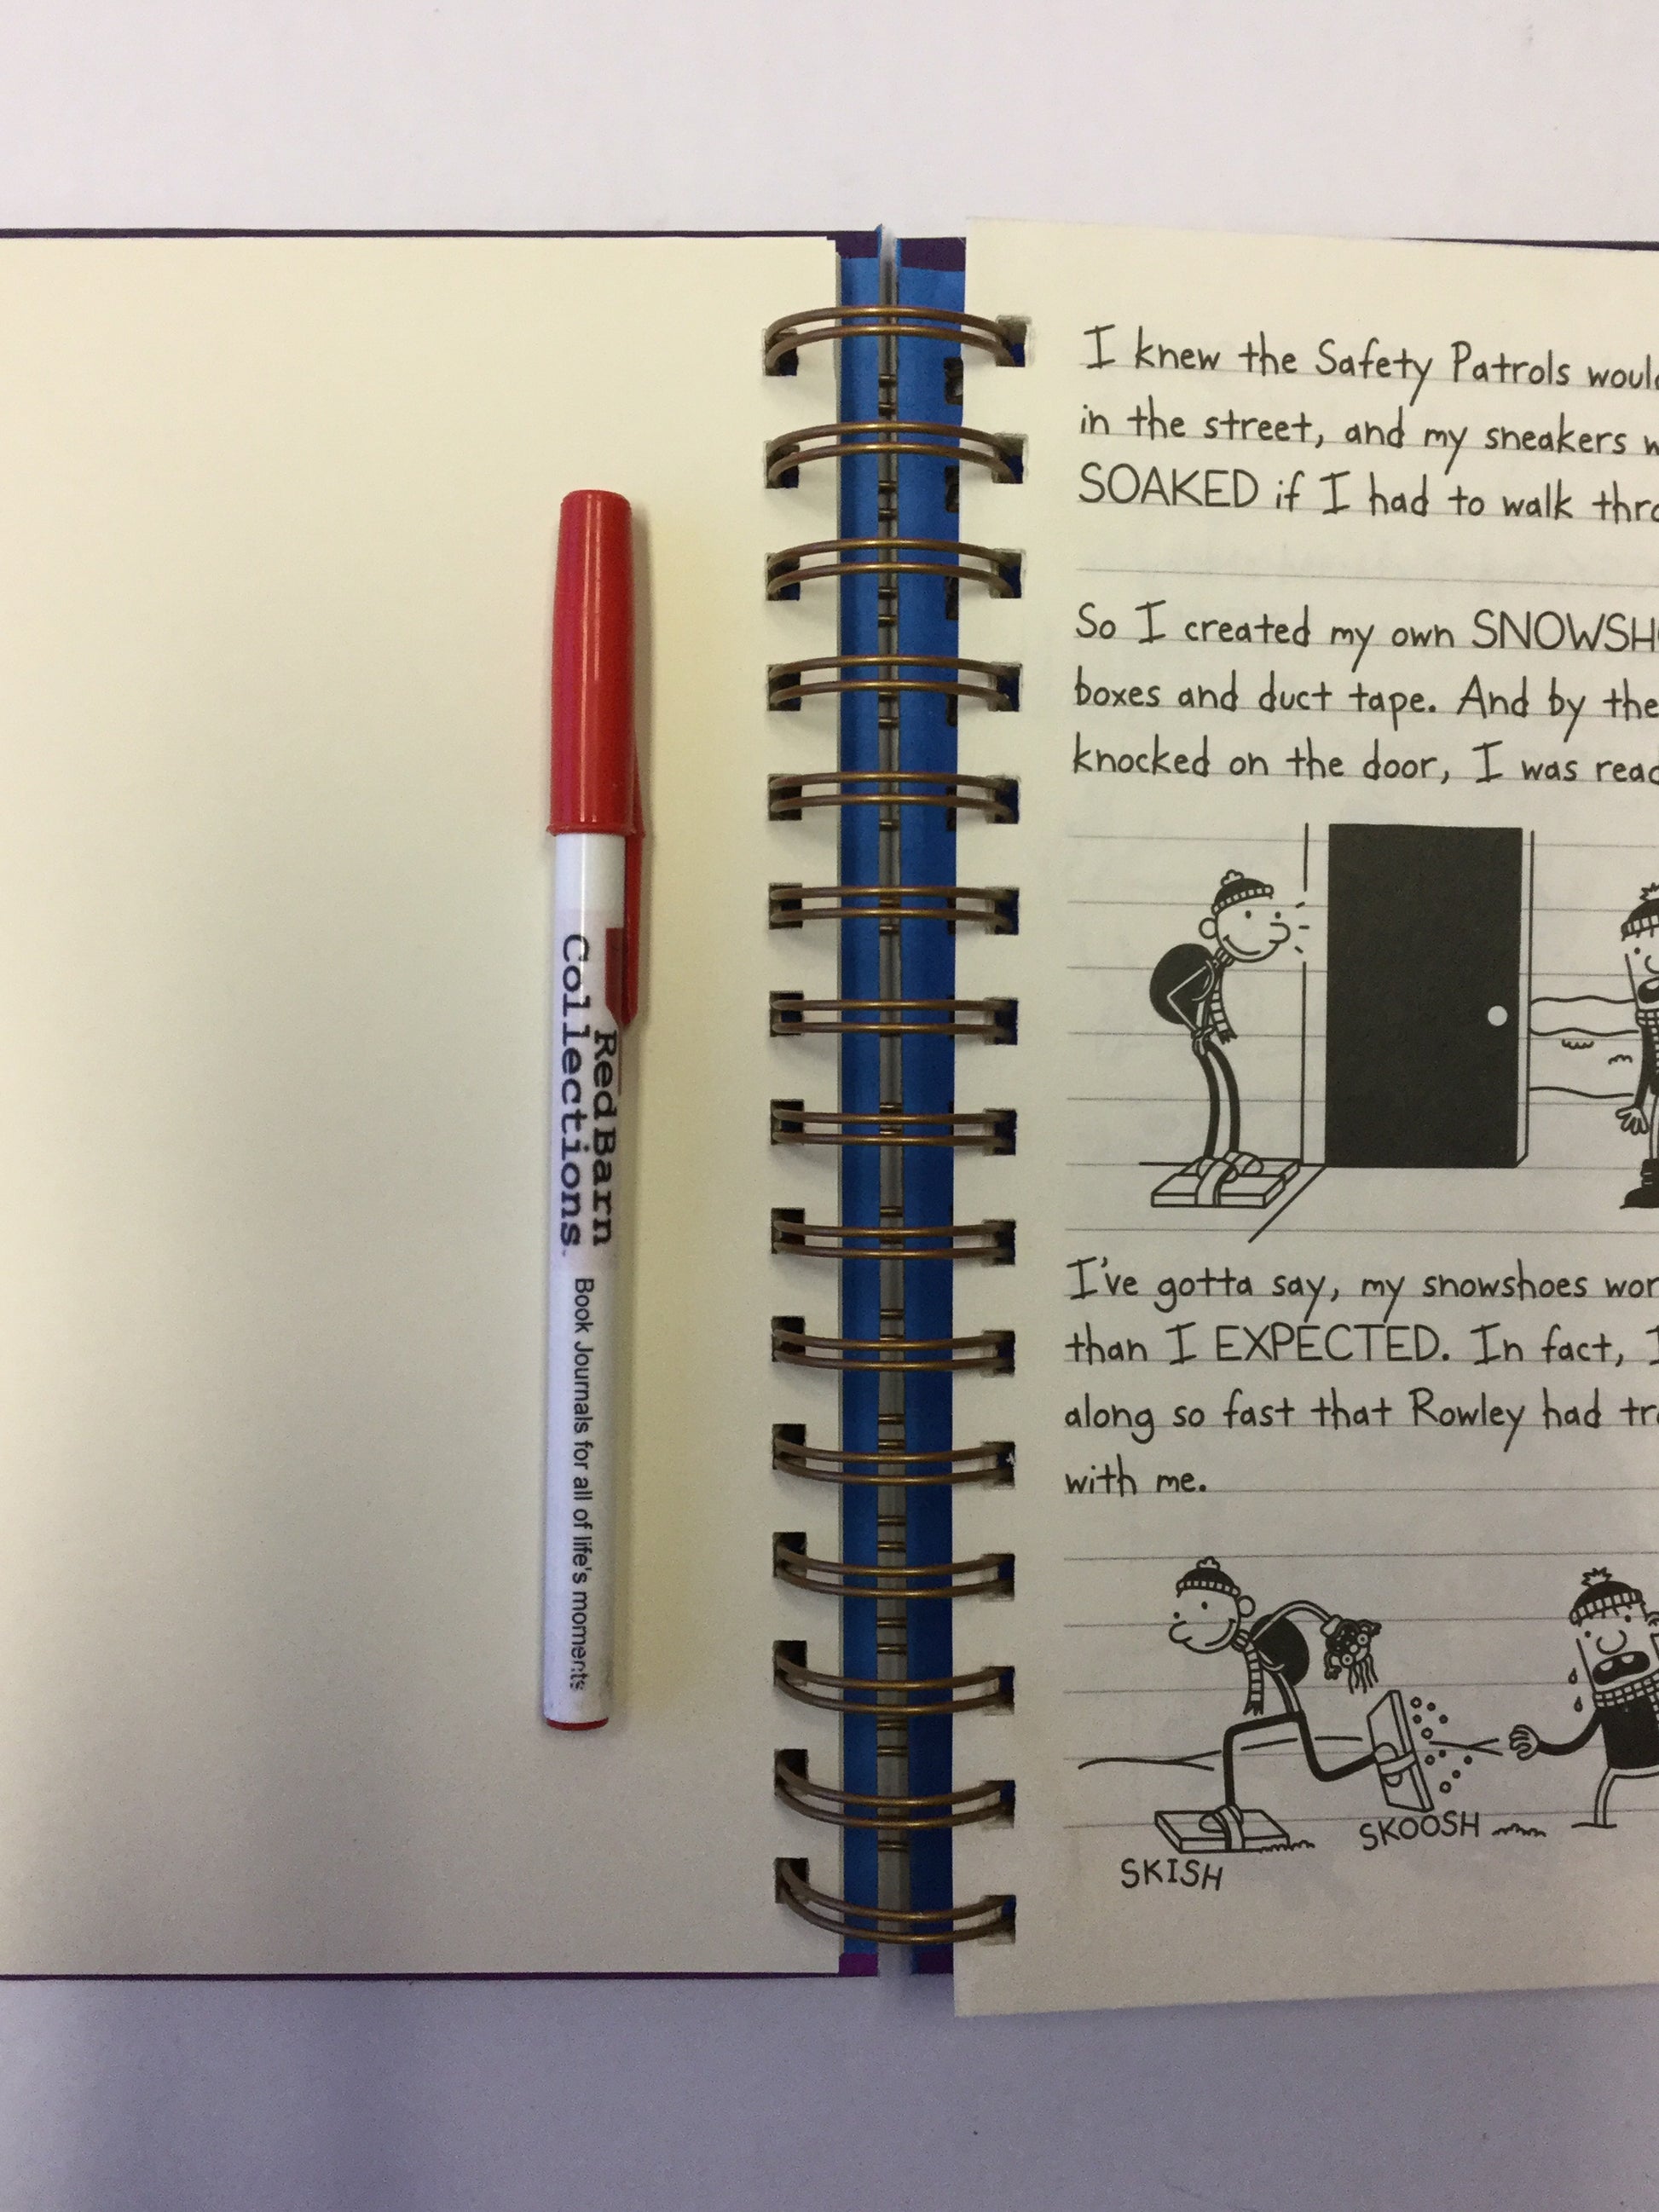 Red Barn
Collections
Book Journals for all of life's moments
I knew the Safety Patrols
in the street, and my sneakers
SOAKED if I had to walk
So I created my own
boxes and duct tape. And by the
knocked on the door, I was
I've gotta say, my snowshoes
than I EXPECTED. In fact, I
along so fast that Rowley had
with me.
SKISH
SKOOSH